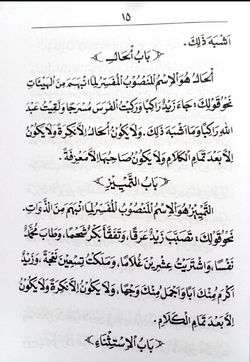 ١٥
اَشْبَهَ ذَلِكَ .
﴿بَابُ الْحَالِ﴾
اَلْحَالُ هُوَ الْاِسْمُ الْمَنْصُوْبُ الْمُفَسِّرُ لِمَا انْبَهَمَ مِنَ الْهَيْئَاتِ
نَحْوُ قَوْلِكَ : جَاءَ زَيْدٌ رَاكِبًا وَرَكِبْتُ الْفَرَسَ مُسْرَجًا وَلَقِيْتُ عَبْدَ
اللهِ رَاكِبًا وَمَا اَشْبَهَ ذَلِكَ. وَلَا يَكُوْنُ الْحَالُ اِلَّا نَكِرَةً وَلَا يَكُوْنُ
اِلَّا بَعْدَ تَمَامِ الْكَلَامِ وَلَا يَكُوْنُ صَاحِبُهَا اِلَّا مَعْرِفَةً .
﴿بَابُ التَّمْيِيْزِ﴾
اَلتَّمْيِيْزُ هُوَ الْاِسْمُ الْمَنْصُوْبُ الْمُفَسِّرُ لِمَا انْبَهَمَ مِنَ الذَّوَاتِ .
نَحْوُ قَوْلِكَ : تَصَبَّبَ زَيْدٌ عَرَقًا ، وَتَفَقَّأَ بَكْرٌ شَحْمًا ، وَطَابَ مُحَمَّدٌ
نَفْسًا ، وَاشْتَرَيْتُ عِشْرِيْنَ غُلَامًا ، وَمَلَكْتُ تِسْعِيْنَ نَعْجَةً ، وَزَيْدٌ
اَكْرَمُ مِنْكَ اَبًا وَاَجْمَلُ مِنْكَ وَجْهًا ، وَلَا يَكُوْنُ اِلَّا نَكِرَةً وَلَا يَكُوْنُ
اِلَّا بَعْدَ تَمَامِ الْكَلَامِ .
﴿بَابُ الْاِسْتِثْنَاءِ﴾